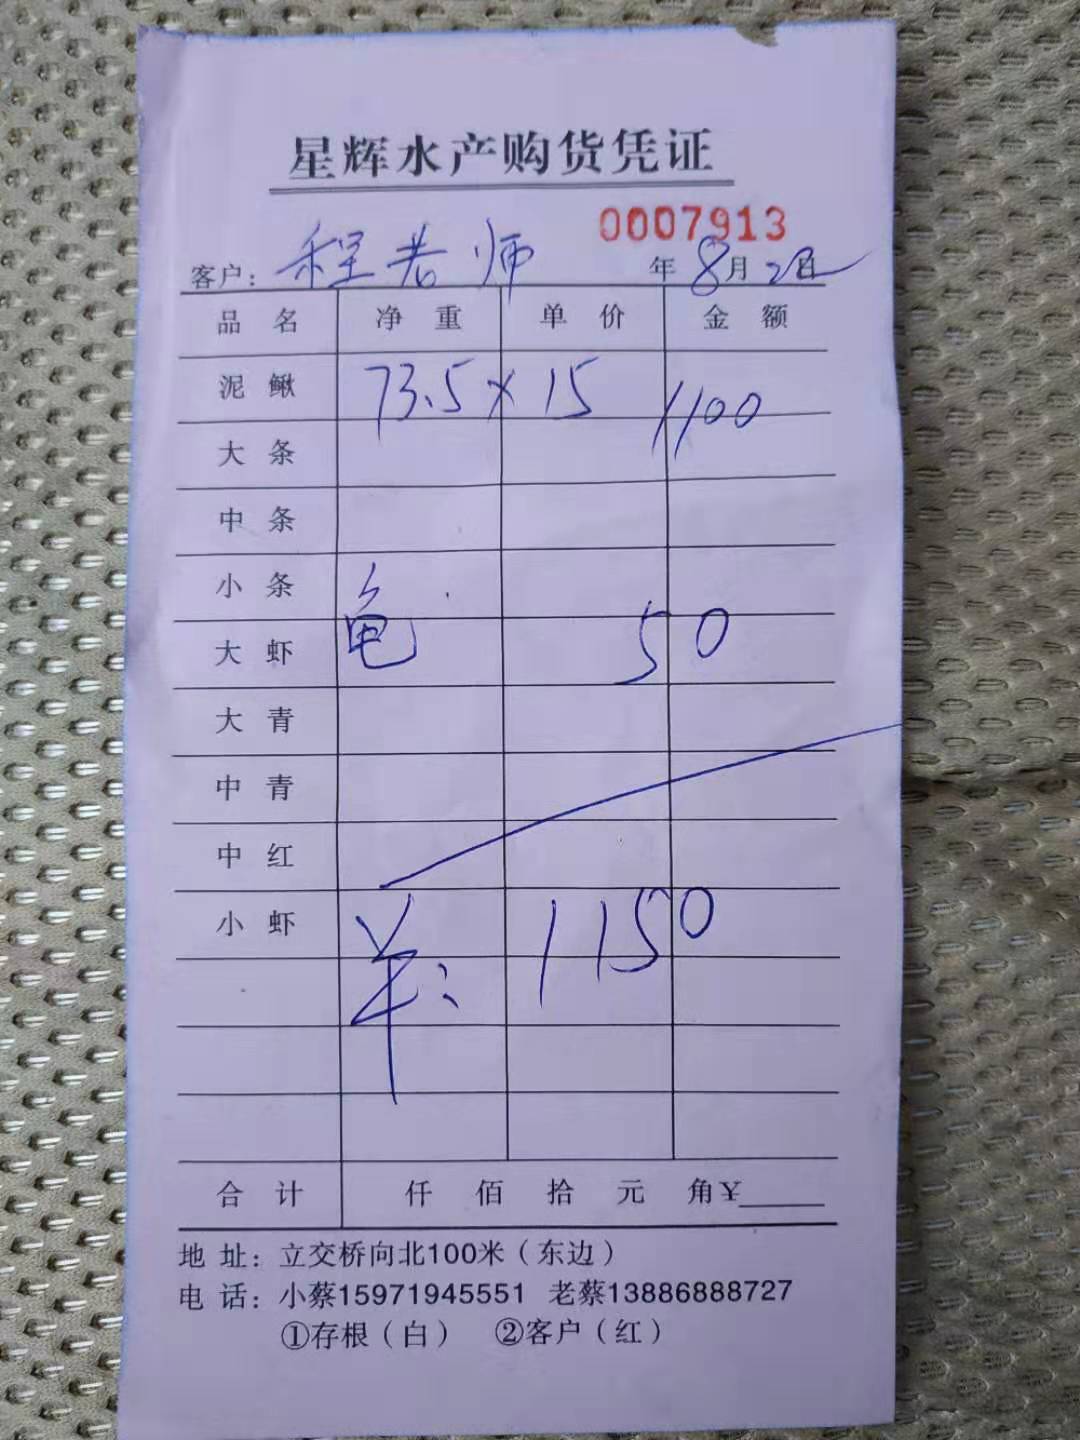 星辉水产购货凭证
0007913
客户：程老师 年 8月 2日
品名 净重 单价 金额
泥鳅 73.5 × 15 1100
大条
中条
小条
龟 50
大虾
大青
中青
中红
小虾
1150
合计 仟 佰 拾 元 角¥
地 址：立交桥向北100米（东边）
电 话：小蔡15971945551 老蔡13886888727
①存根（白） ②客户（红）